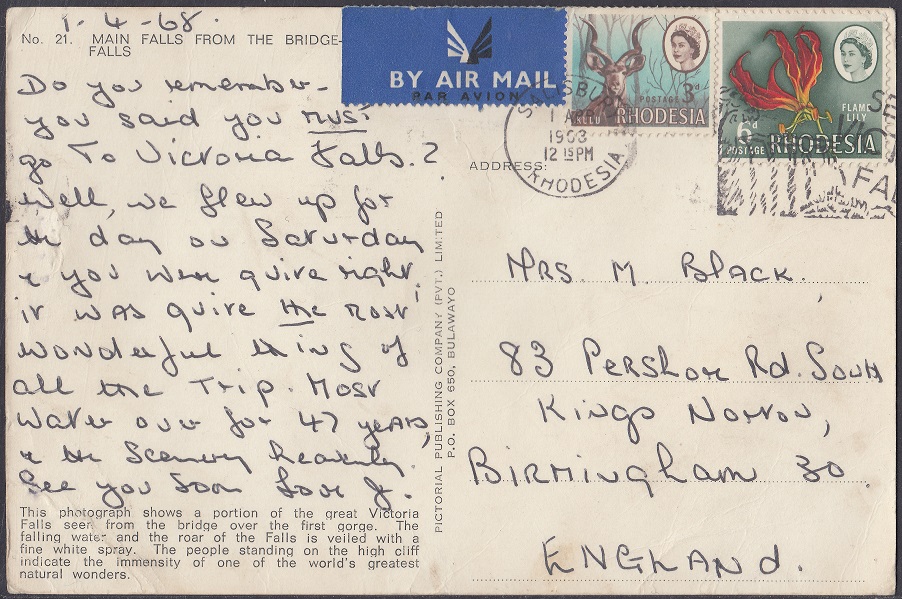 1-4-68.
No. 21. MAIN FALLS FROM THE BRIDGE-
FALLS
Do you remember -
you said you MUST
go To Victoria Falls. ?
Well, we flew up for
the day on Saturday
& you were quite right
it was quite the most
wonderful thing of
all the Trip. Most
Water over for 47 years,
& the Scenery heavenly.
See you Soon Love J.
This photograph shows a portion of the great Victoria
Falls seen from the bridge over the first gorge. The
falling water and the roar of the Falls is veiled with a
fine white spray. The people standing on the high cliff
indicate the immensity of one of the world's greatest
natural wonders.
PICTORIAL PUBLISHING COMPANY (PVT.) LIMITED
P.O. BOX 650, BULAWAYO
BY AIR MAIL
PAR AVION
3d
POSTAGE
KUDU RHODESIA
FLAME
LILY
6d
POSTAGE RHODESIA
SALISBURY
1 AP
1968
12 15PM
RHODESIA
ADDRESS:
Mrs. M. Black.
83 Pershore Rd. South
Kings Norton,
Birmingham 30
ENGLAND.